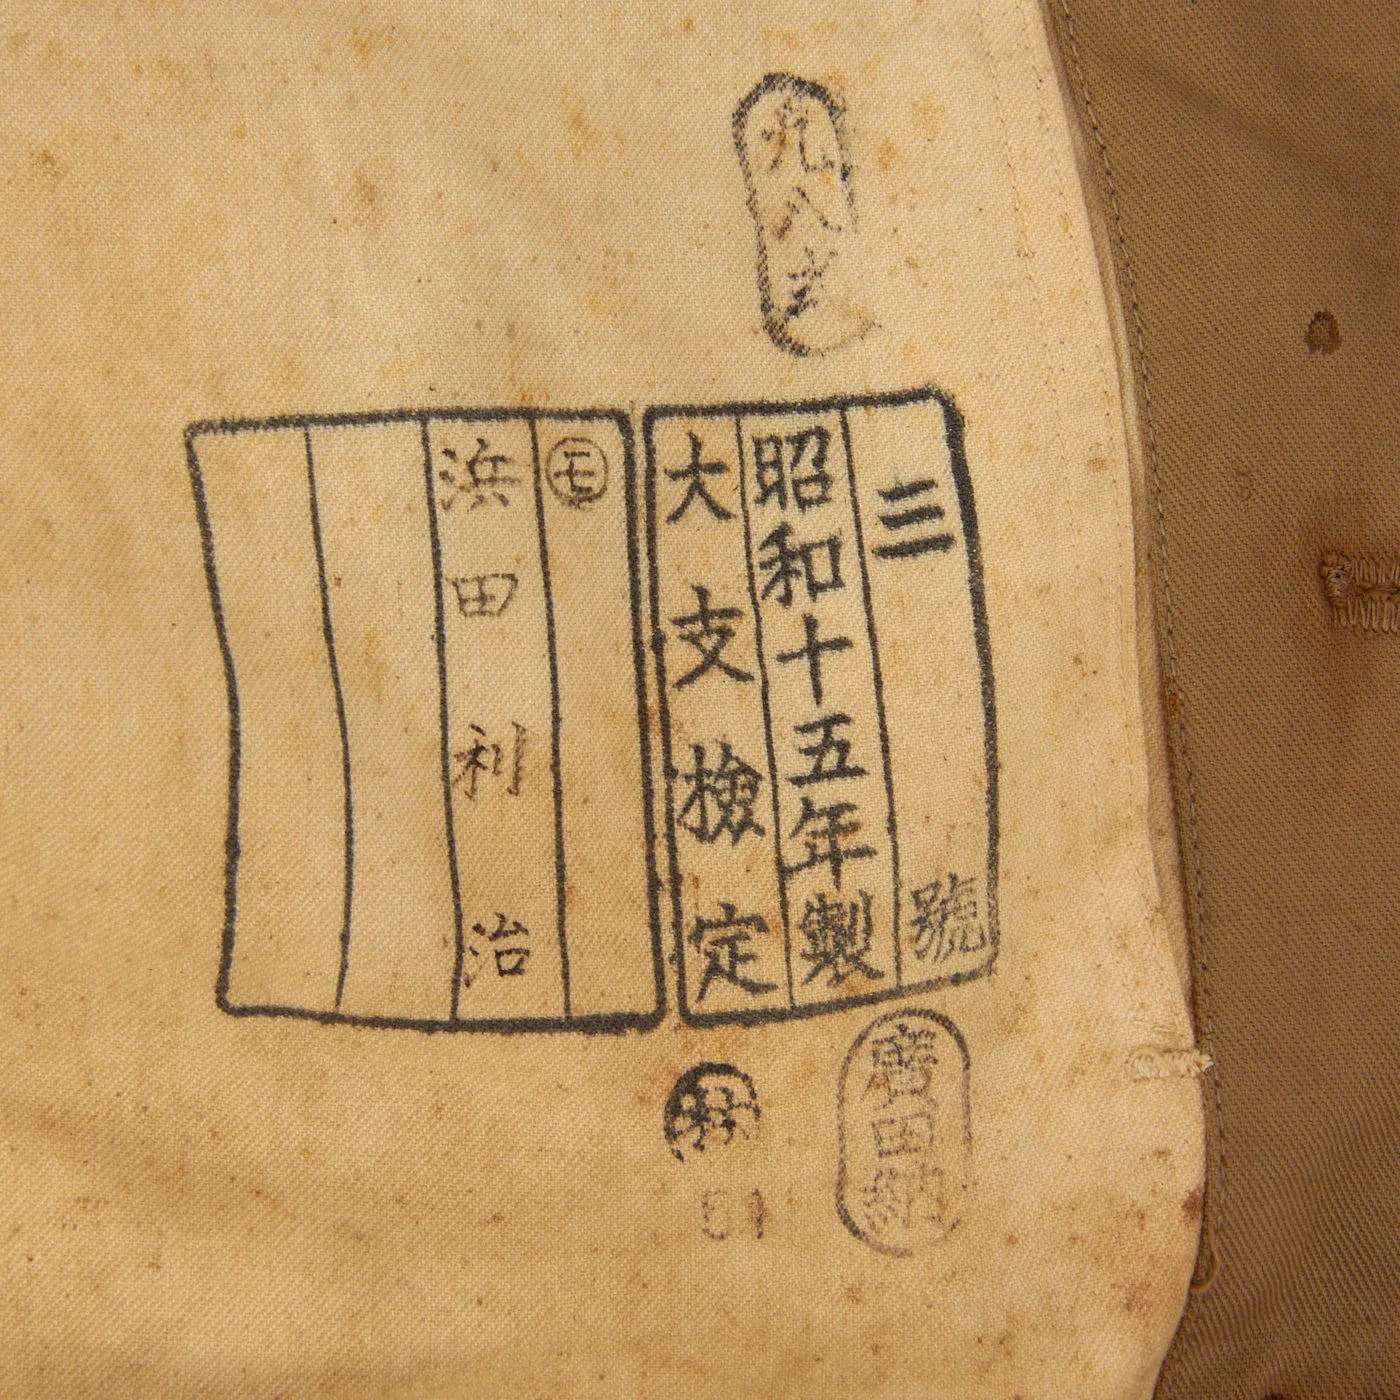 九八式
三號
昭和十五年製
大支檢定
㋲
浜田利治
廣田納
61